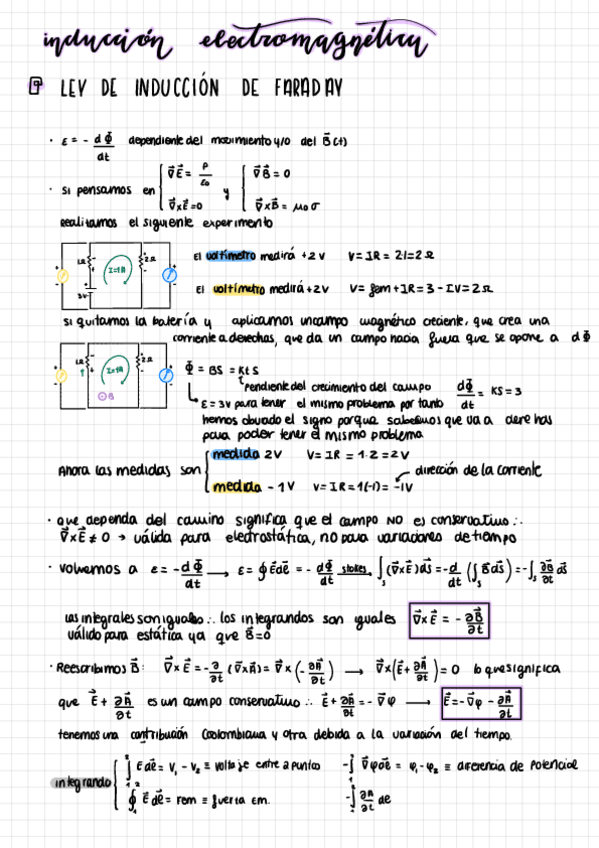 inducción electromagnética
LEY DE INDUCCIÓN DE FARADAY
· ε = - dΦ/dt dependiente del movimiento y/o del B⃗(t)
· Si pensamos en { ∇⃗E⃗ = ρ/ε₀ ∇⃗×E⃗ = 0 y { ∇⃗B⃗ = 0 ∇⃗×B⃗ = μ₀ σ
Realizamos el siguiente experimento
1Ω I=1A 2Ω 3V
El voltímetro medirá +2V V = IR = 2·1 = 2Ω
El voltímetro medirá +2V V = fem + IR = 3 - 1V = 2Ω
Si quitamos la batería y aplicamos un campo magnético creciente, que crea una
corriente a derechas, que da un campo hacia fuera que se opone a dΦ
1Ω I=1A 2Ω B
Φ⃗ = BS = Kt S
Pendiente del crecimiento del campo dΦ⃗/dt = KS = 3
ε = 3V para tener el mismo problema por tanto
hemos obviado el signo porque sabemos que va a derechas
para poder tener el mismo problema
Ahora las medidas son { medida 2V V = IR = 1·2 = 2V
medida - 1V V = IR = 1(-1) = -1V dirección de la corriente
· que dependa del camino significa que el campo NO es conservativo ∴
∇⃗×E⃗ ≠ 0 → válida para electrostática, no para variaciones de tiempo
· volvemos a ε = - dΦ⃗/dt → ε = ∮ E⃗dℓ⃗ = - dΦ⃗/dt stokes ∫s (∇⃗×E⃗)dS⃗ = - d/dt (∫s B⃗dS⃗) = - ∫s ∂B⃗/∂t dS⃗
Las integrales son iguales ∴ los integrandos son iguales ∇⃗×E⃗ = - ∂B⃗/∂t
válido para estática ya que B⃗=0
· Reescribimos B⃗: ∇⃗×E⃗ = - ∂/∂t (∇⃗×A⃗) = ∇⃗×(- ∂A⃗/∂t) → ∇⃗×(E⃗+ ∂A⃗/∂t) = 0 lo que significa
que E⃗ + ∂A⃗/∂t es un campo conservativo ∴ E⃗ + ∂A⃗/∂t = - ∇⃗φ → E⃗ = - ∇⃗φ - ∂A⃗/∂t
tenemos una contribución Coulombiana y otra debida a la variación del tiempo.
integrando { ∫₁² E⃗dℓ⃗ = V₁ - V₂ ≡ voltaje entre 2 puntos - ∫₁² ∇⃗φdℓ⃗ = φ₁ - φ₂ ≡ diferencia de potencial
∮ E⃗dℓ⃗ = fem ≡ fuerza em. - ∫₁² ∂A/∂t dℓ